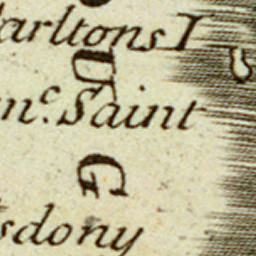 arltons I
nc. Saint
G
sdony